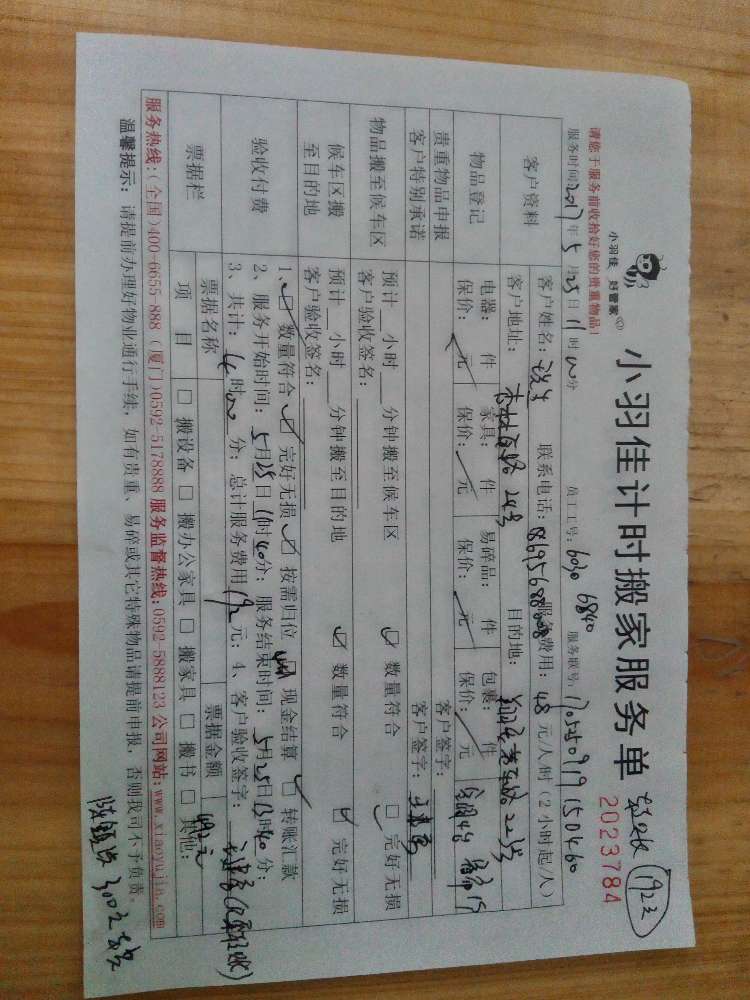 小羽佳 好管家
小羽佳计时搬家服务单
192元
请您于服务前收拾好您的贵重物品!
2023784
服务时间2017年5月25日11时00分 员工工号:6030 6840 服务联号:
客户资料 客户姓名: 联系电话: 服务费用:48元/人/时(2小时起/人)
客户地址: 24号 目的地: 22号
物品登记 电器: 件 家具: 件 易碎品: 件 包裹: 件
保价: 元 保价: 元 保价: 元 保价: 元
贵重物品申报 客户签字:
客户特别承诺 客户签字:
物品搬至候车区 预计__小时__分钟搬至候车区 ☑ 数量符合 ☑ 完好无损
客户验收签名:
候车区搬至目的地 预计__小时__分钟搬至目的地 ☑ 数量符合 ☑ 完好无损
客户验收签名:
验收付费 1、☑ 数量符合 ☑ 完好无损 ☑ 按需归位 □ 现金结算 ☑ 转账汇款
2、服务开始时间:5月25日11时40分;服务结束时间:5月25日13时40分;
3、共计:4时00分;总计服务费用192元;4、客户验收签字:
票据栏 票据名称 票据金额 192元
项目 □ 搬设备 □ 搬办公家具 □ 搬家具 □ 搬书 □ 其他:
服务热线:(全国)400-6655-888 (厦门)0592-5178888 服务监督热线:0592-5888123 公司网站:www.xiaoyujia.com
温馨提示: 请提前办理好物业通行手续,如有贵重、易碎或其它特殊物品请提前申报,否则我司不予负责。
300元